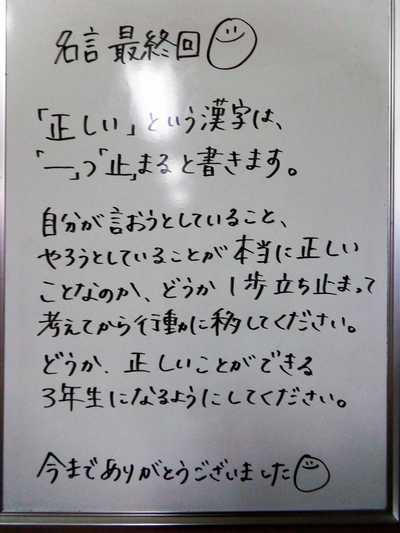 名言 最終回
「正しい」という漢字は、
「一」つ「止」まると書きます。
自分が言おうとしていること、
やろうとしていることが本当に正しい
ことなのか、どうか1歩立ち止まって
考えてから行動に移してください。
どうか、正しいことができる
3年生になるようにしてください。
今までありがとうございました